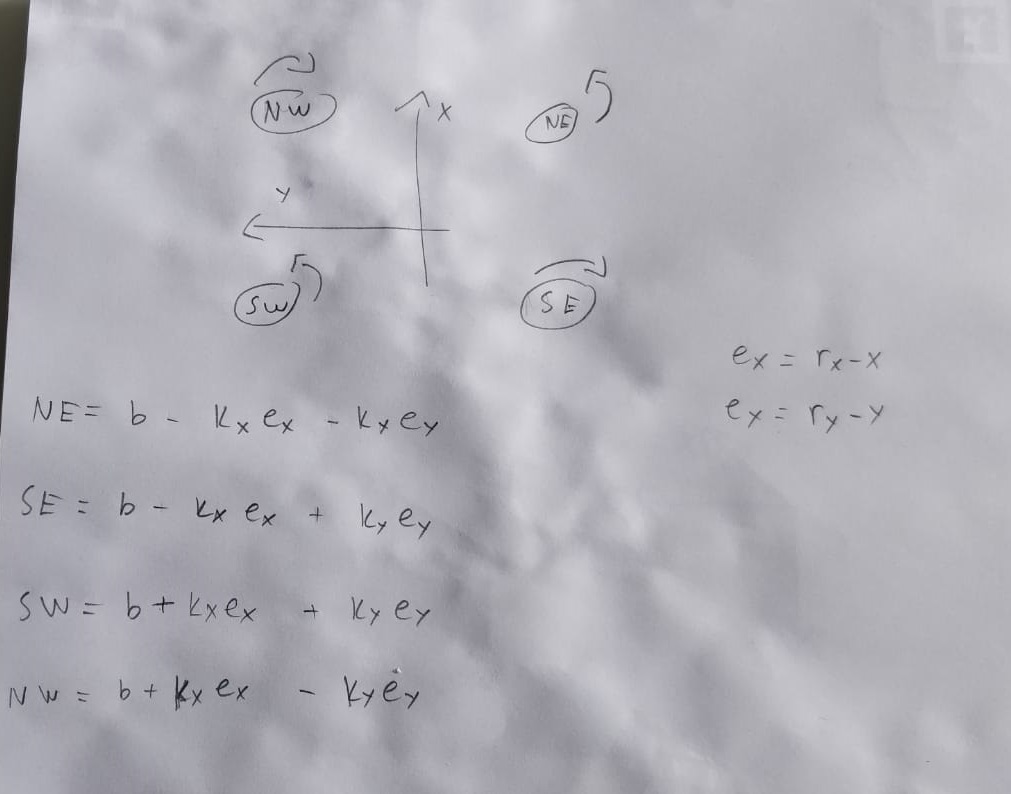 NW
x
NE
y
SW
SE
ex = rx-x
NE= b - kx ex - kx ey
ex = ry-y
SE = b - kx ex + ky ey
SW= b + kx ex + ky ey
NW = b + kx ex - ky ey